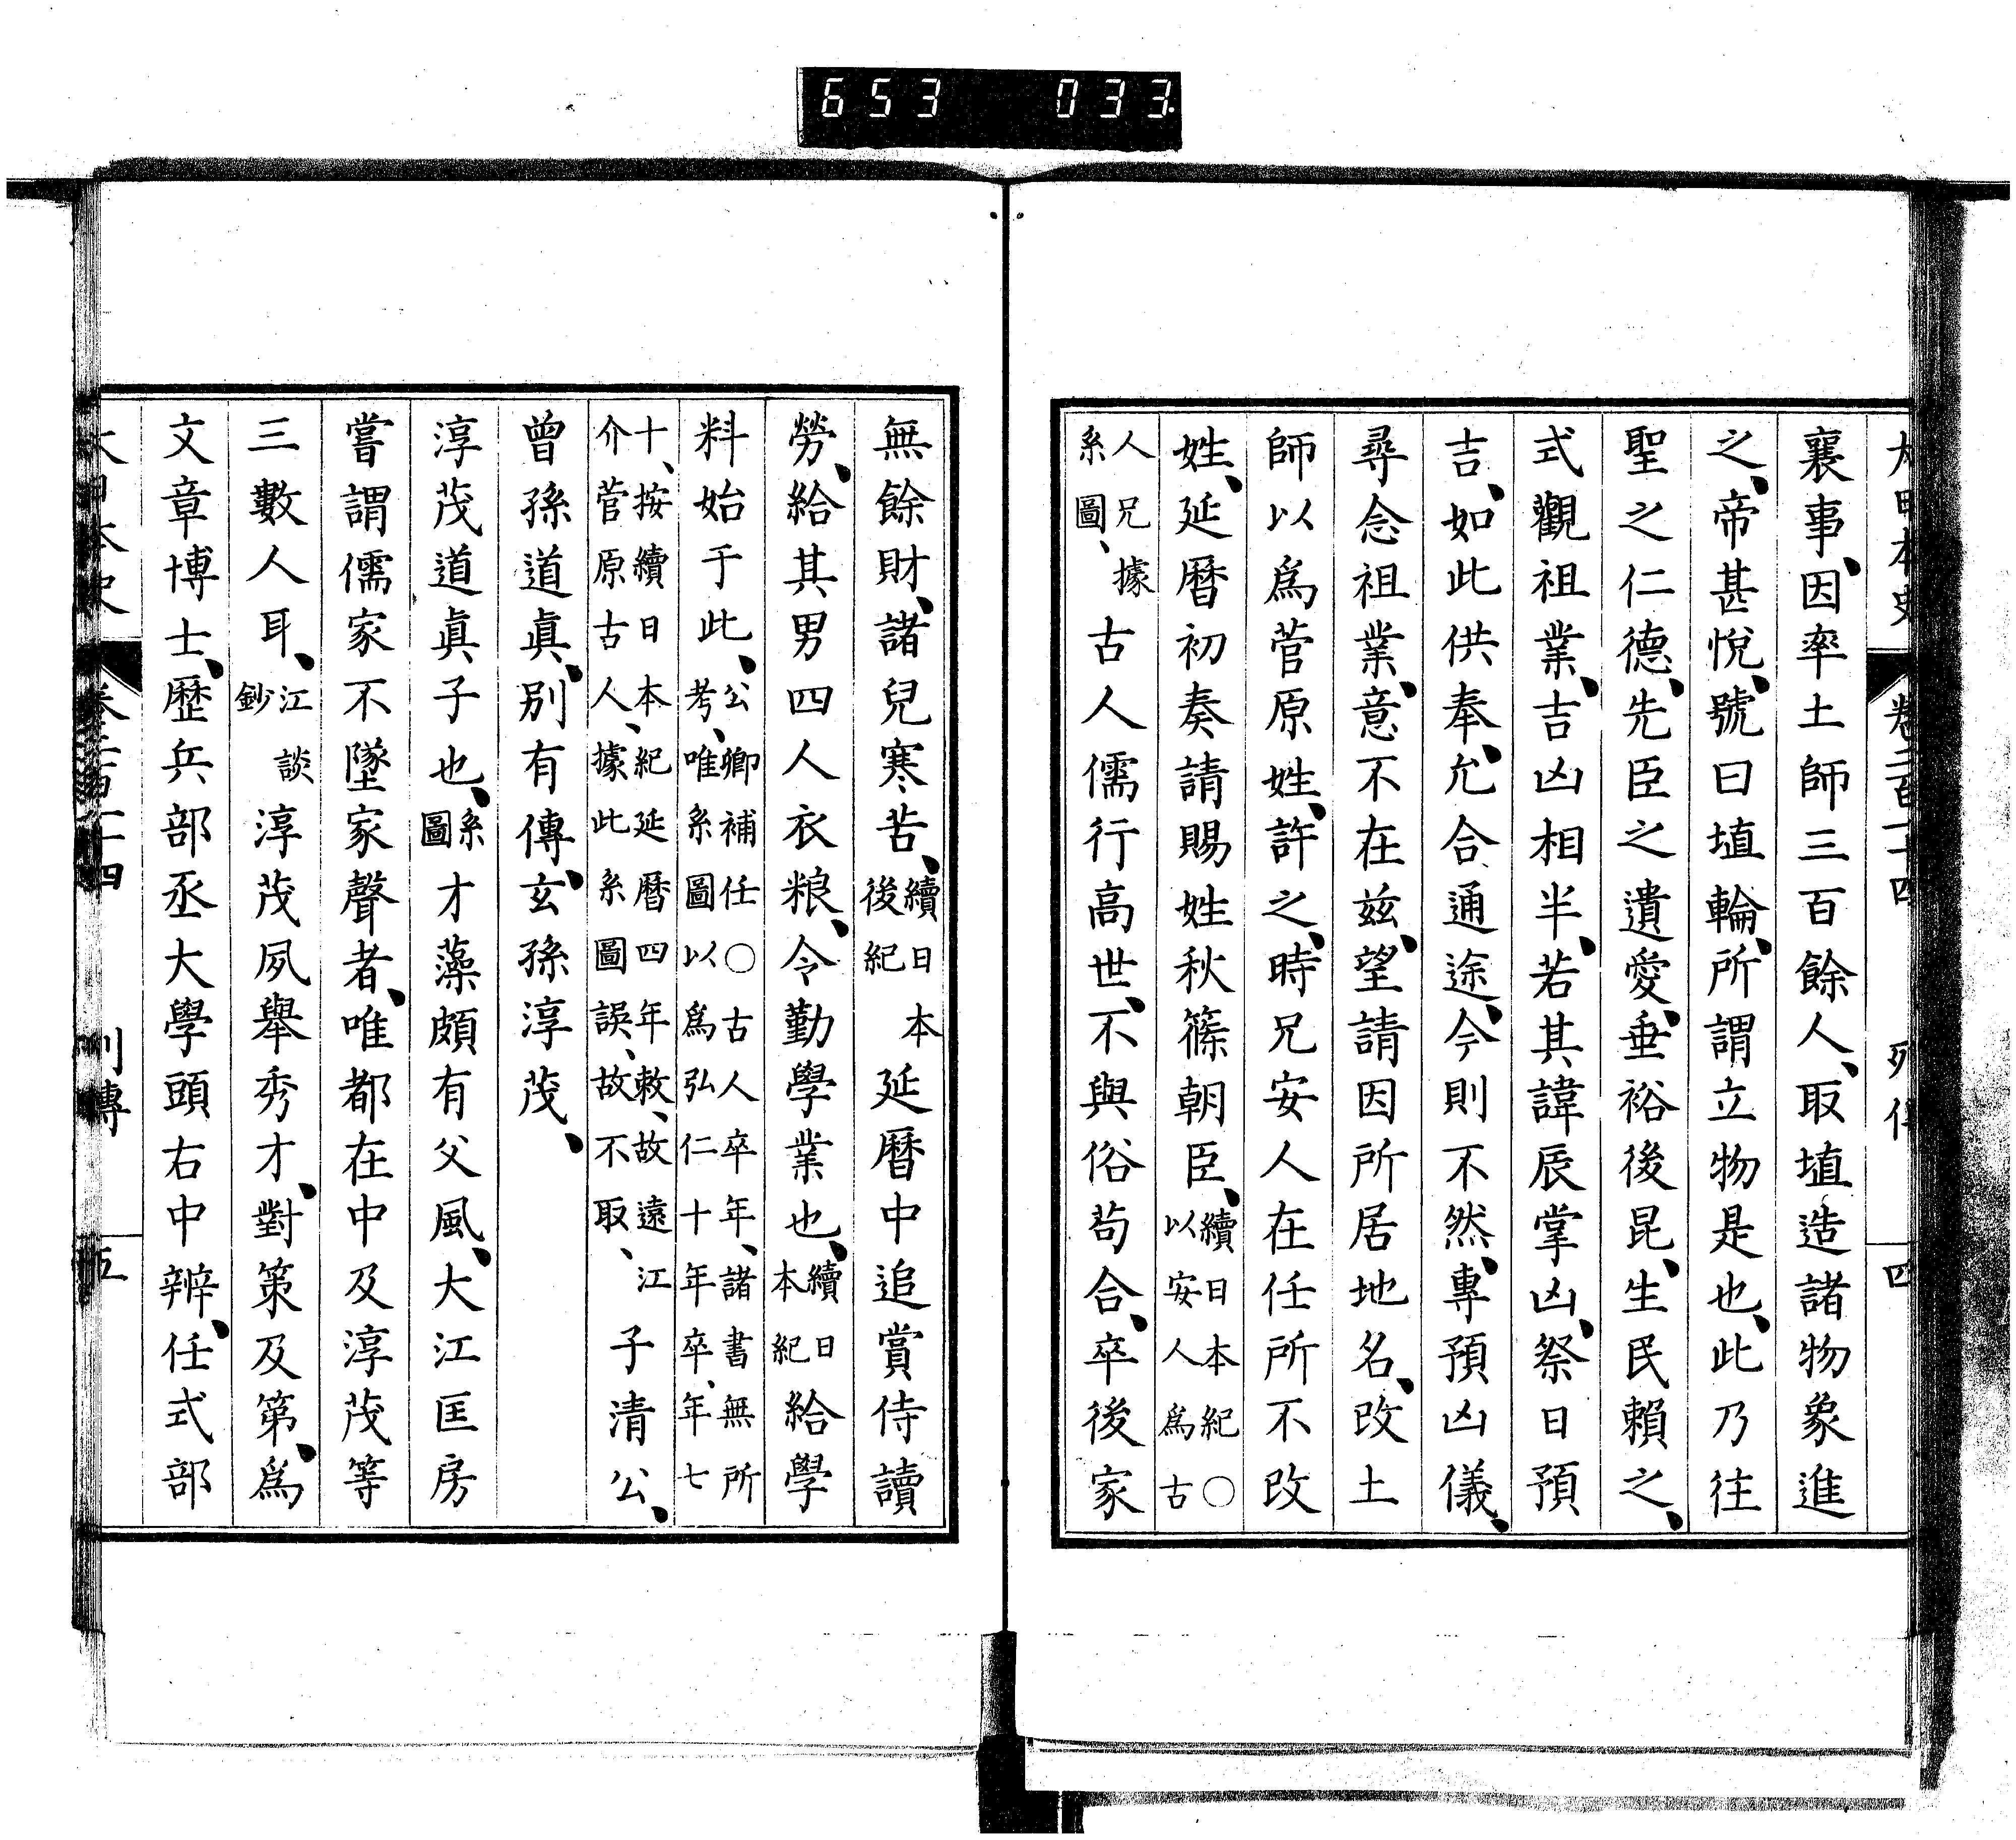 653 033
大日本史 卷二百一十四 列傳 四
襄事、因率土師三百餘人、取埴造諸物象進
之、帝甚悅、號曰埴輪、所謂立物是也、此乃往
聖之仁德、先臣之遺愛、垂裕後昆、生民賴之、
式觀祖業、吉凶相半、若其諱辰掌凶、祭日預
吉、如此供奉、允合通途、今則不然、專預凶儀、
尋念祖業、意不在茲、望請因所居地名、改土
師以爲菅原姓、許之、時兄安人在任所不改
姓、延曆初奏請賜姓秋篠朝臣、續日本紀○以安人爲古
人兄、據系圖、古人儒行高世、不與俗苟合、卒後家
無餘財、諸兒寒苦、續日本後紀延曆中追賞侍讀
勞、給其男四人衣粮、令勤學業也、續日本紀給學
料始于此、公卿補任○古人卒年、諸書無所考、唯系圖以爲弘仁十年卒、年七
十、按續日本紀延曆四年敕、故遠江介菅原古人、據此系圖誤、故不取、子清公、
曾孫道眞、別有傳、玄孫淳茂、
淳茂道眞子也、系圖才藻頗有父風、大江匡房
嘗謂儒家不墜家聲者、唯都在中及淳茂等
三數人耳、江談鈔淳茂夙舉秀才、對策及第、爲
文章博士、歷兵部丞大學頭右中辨、任式部
大日本史 卷二百一十四 列傳 五